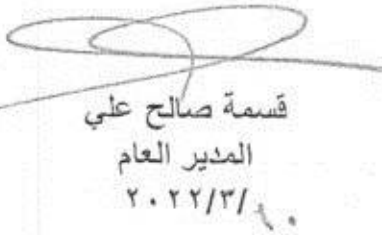 قسمة صالح علي
المدير العام
٢٠٢٢/٣/